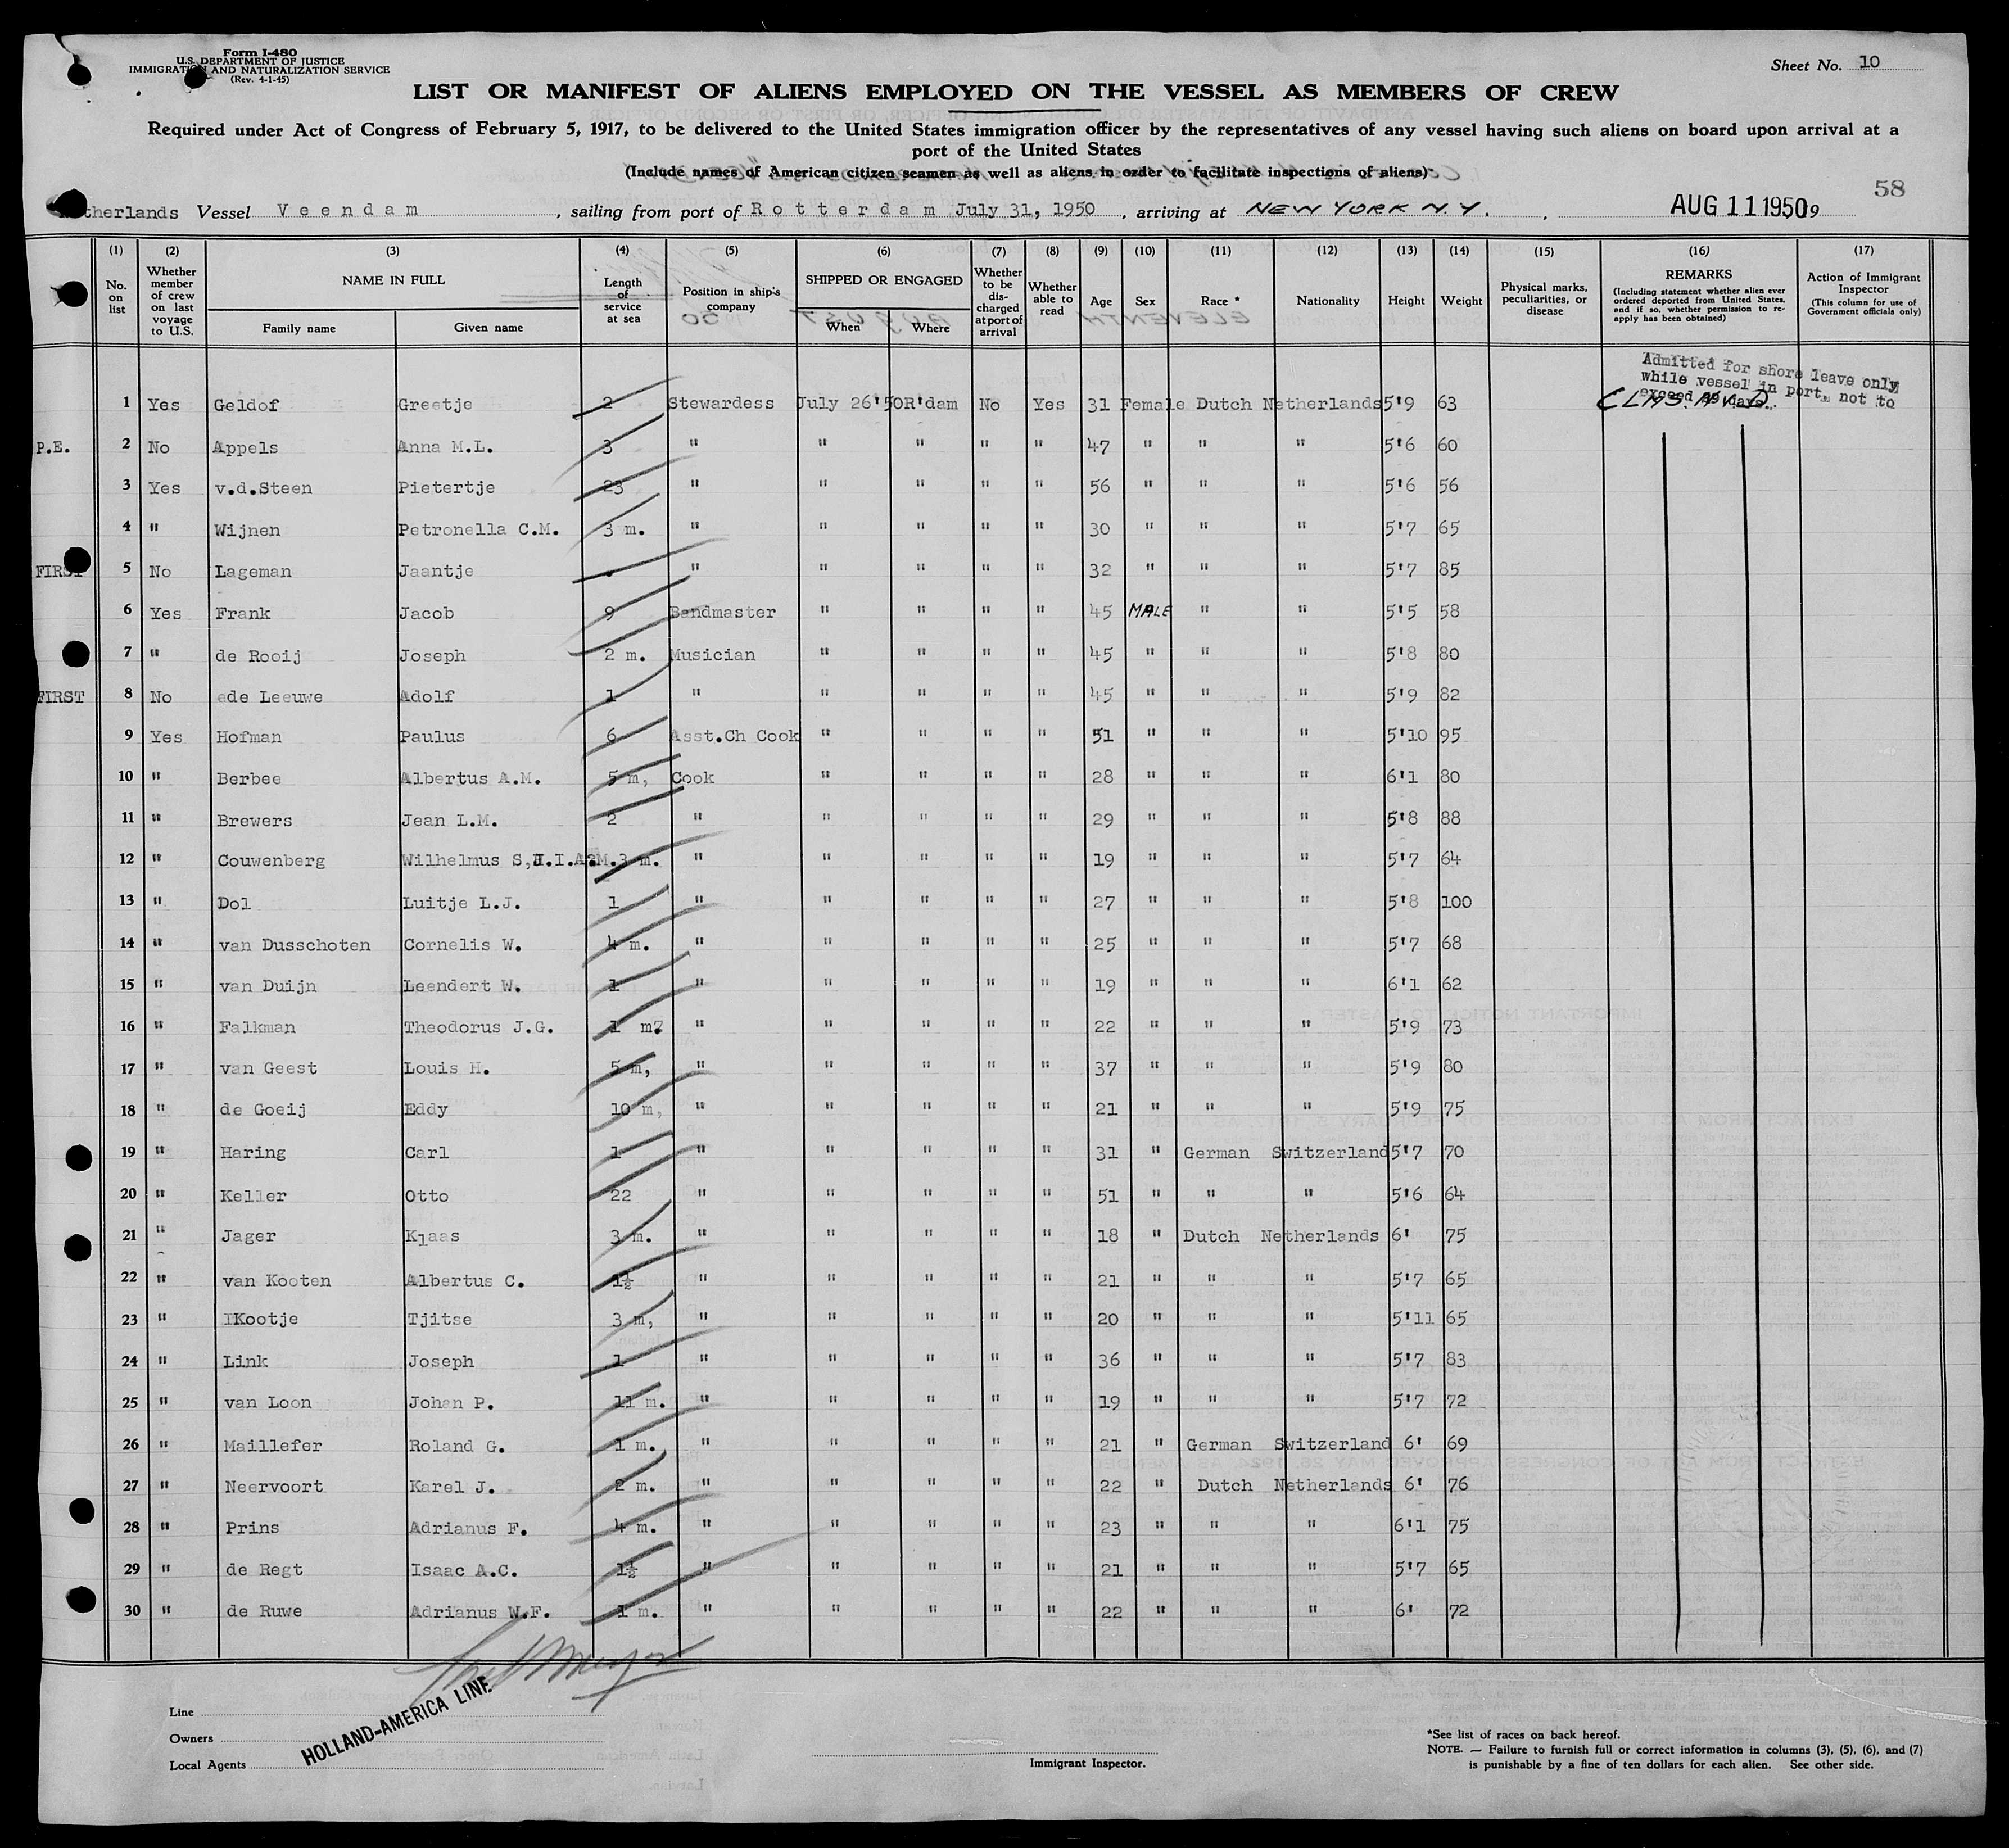 Form I-480
U.S. DEPARTMENT OF JUSTICE
IMMIGRATION AND NATURALIZATION SERVICE
(Rev. 4-1-45)
Sheet No. 10
LIST OR MANIFEST OF ALIENS EMPLOYED ON THE VESSEL AS MEMBERS OF CREW
Required under Act of Congress of February 5, 1917, to be delivered to the United States immigration officer by the representatives of any vessel having such aliens on board upon arrival at a
port of the United States
(Include names of American citizen seamen as well as aliens in order to facilitate inspections of aliens)
58
therlands Vessel Veendam, sailing from port of Rotterdam July 31, 1950, arriving at NEW YORK N.Y. , AUG 11 1950 9
(1) (2) (3) (4) (5) (6) (7) (8) (9) (10) (11) (12) (13) (14) (15) (16) (17)
No. on list Whether member of crew on last voyage to U.S. NAME IN FULL Family name Given name Length of service at sea Position in ship's company SHIPPED OR ENGAGED When Where Whether to be discharged at port of arrival Whether able to read Age Sex Race * Nationality Height Weight Physical marks, peculiarities, or disease REMARKS (Including statement whether alien ever ordered deported from United States, and if so, whether permission to reapply has been obtained) Action of Immigrant Inspector (This column for use of Government officials only)
Admitted for shore leave only
while vessel in port, not to
exceed 29 days.
1 Yes Geldof Greetje 2 Stewardess July 26'50 R'dam No Yes 31 Female Dutch Netherlands 5'9 63
P.E. 2 No Appels Anna M.L. 3 " " " " " 47 " " " 5'6 60
3 Yes v.d.Steen Pietertje 23 " " " " " 56 " " " 5'6 56
4 " Wijnen Petronella C.M. 3 m. " " " " " 30 " " " 5'7 65
FIRST 5 No Lageman Jaantje " " " " " 32 " " " 5'7 85
6 Yes Frank Jacob 9 Bandmaster " " " " 45 MALE " " 5'5 58
7 " de Rooij Joseph 2 m. Musician " " " " 45 " " " 5'8 80
FIRST 8 No de Leeuwe Adolf 1 " " " " " 45 " " " 5'9 82
9 Yes Hofman Paulus 6 Asst.Ch Cook " " " " 51 " " " 5'10 95
10 " Berbee Albertus A.M. 5 m, Cook " " " " 28 " " " 6'1 80
11 " Brewers Jean L.M. 2 " " " " " 29 " " " 5'8 88
12 " Couwenberg Wilhelmus 3 m. " " " " " 19 " " " 5'7 64
13 " Dol Luitje L.J. 1 " " " " " 27 " " " 5'8 100
14 " van Dusschoten Cornelis W. 4 m. " " " " " 25 " " " 5'7 68
15 " van Duijn Leendert W. 1 " " " " " 19 " " " 6'1 62
16 " Falkman Theodorus J.G. 1 m. " " " " " 22 " " " 5'9 73
17 " van Geest Louis H. 5 m, " " " " " 37 " " " 5'9 80
18 " de Goeij Eddy 10 m, " " " " " 21 " " " 5'9 75
19 " Haring Carl 1 " " " " " 31 " German Switzerland 5'7 70
20 " Keller Otto 22 " " " " " 51 " " " 5'6 64
21 " Jager Klaas 3 m. " " " " " 18 " Dutch Netherlands 6' 75
22 " van Kooten Albertus C. 1½ " " " " " 21 " " " 5'7 65
23 " Kootje Tjitse 3 m, " " " " " 20 " " " 5'11 65
24 " Link Joseph 1 " " " " " 36 " " " 5'7 83
25 " van Loon Johan P. 11 m. " " " " " 19 " " " 5'7 72
26 " Maillefer Roland G. 1 m. " " " " " 21 " German Switzerland 6' 69
27 " Neervoort Karel J. 2 m. " " " " " 22 " Dutch Netherlands 6' 76
28 " Prins Adrianus F. 4 m. " " " " " 23 " " " 6'1 75
29 " de Regt Isaac A.C. 1½ " " " " " 21 " " " 5'7 65
30 " de Ruwe Adrianus W.F. 1 m. " " " " " 22 " " " 6' 72
Line
Owners
Local Agents
HOLLAND-AMERICA LINE
Immigrant Inspector.
*See list of races on back hereof.
NOTE. — Failure to furnish full or correct information in columns (3), (5), (6), and (7)
is punishable by a fine of ten dollars for each alien. See other side.